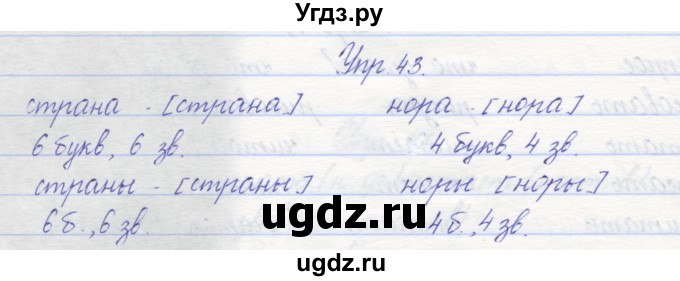 Угдз.ру
Упр. 43.
страна - [страна] нора - [нора]
6 букв, 6 зв. 4 букв, 4 зв.
страны - [страны] норы [норы]
6 б., 6 зв. 4 б., 4 зв.
ugdz.ru
ugdz.ru